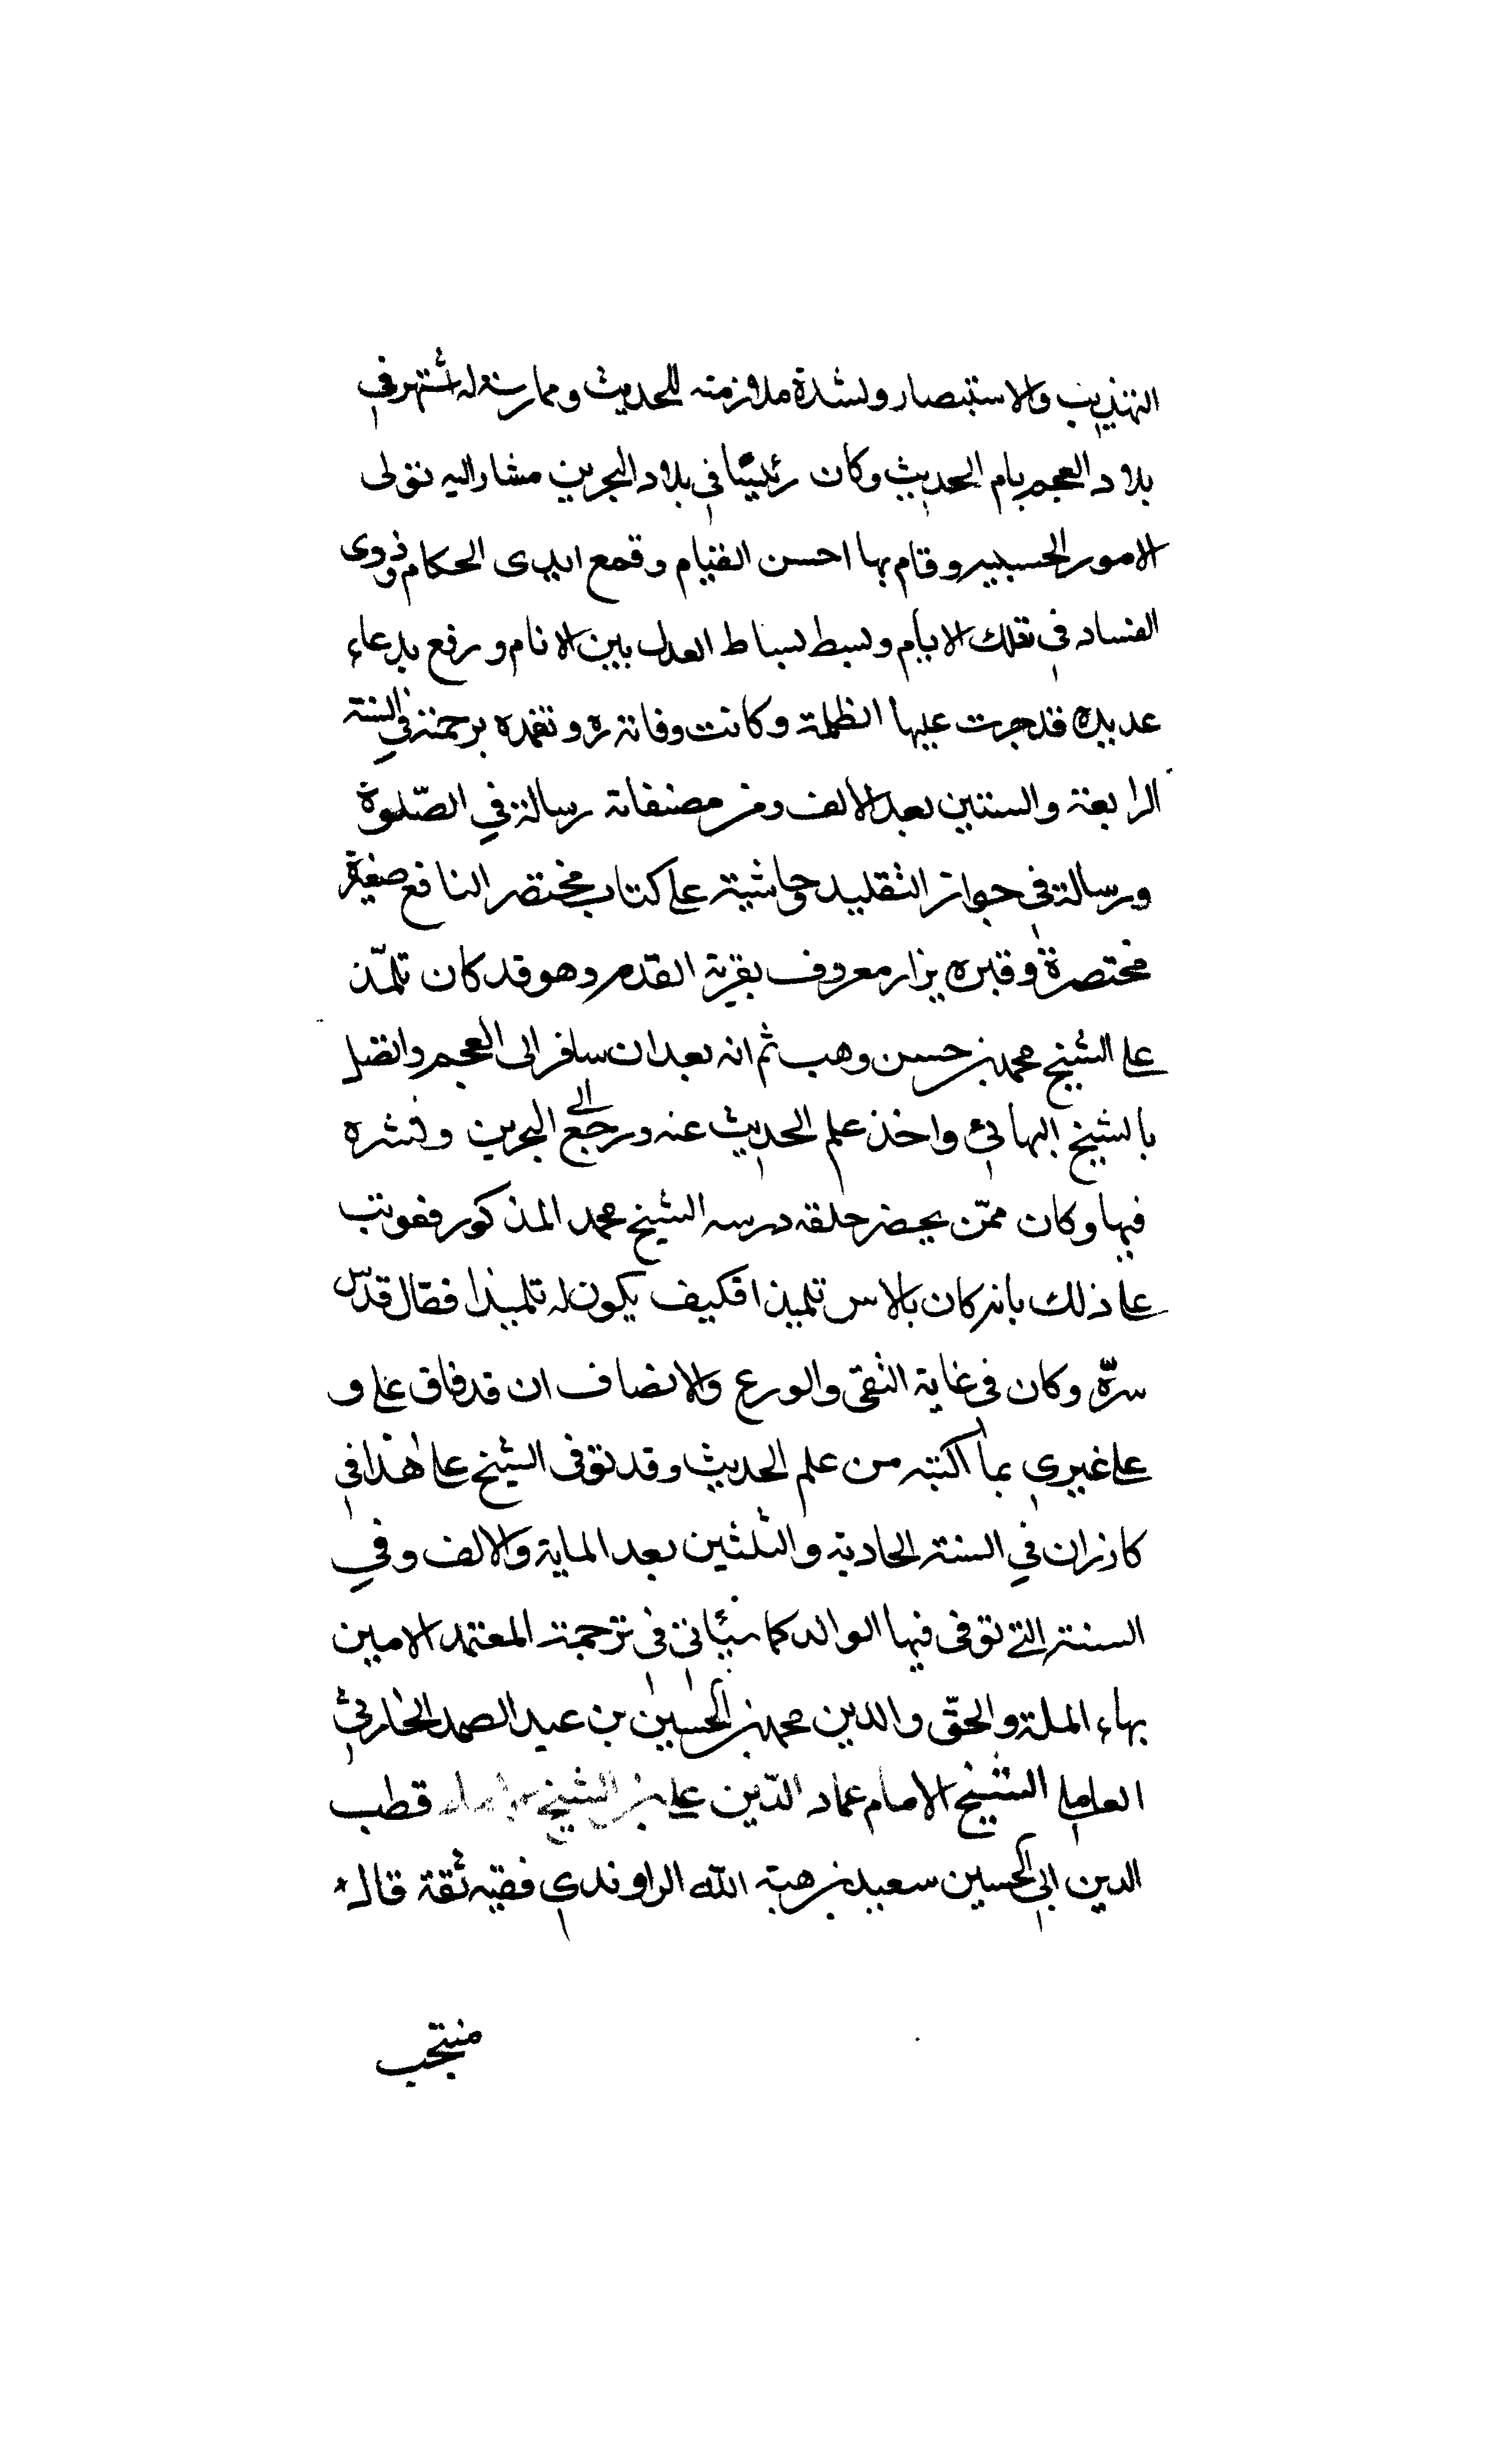 التهذيب والاستبصار ولشدة ملازمته للحديث وممارسته له اشتهر في
بلاد العجم بام الحديث وكان رئيسا في بلاد البحرين مشار اليه تولى
الامور الحسبيه وقام بها احسن القيام وقمع ايدى الحكام وذوى
الفساد في تلك الايام وبسط بساط العدل بين الانام ورفع بدعاء
عديده قد جرت عليها الظلمة وكانت وفاته ره وتغمده برحمته في السنة
الرابعة والستين بعد الالف ومن مصنفاته رسالة في الصّلوة
ورسالة في جواز التقليد حاشية على كتاب مختصر النافع صغيرة
مختصرة وقبره يزار معروف بقرية القدم وهو قد كان تلمّذ
على الشيخ محمد بن حسن وهب ثم انه بعد ان سافر الى العجم واتصل
بالشيخ البهائي واخذ علم الحديث عنه ورجع الى البحرين ونشره
فيها وكان ممّن يحضر حلقه درسه الشيخ محمد المذكور ففوتب
على ذلك بانه كان بالامس تلميذا فكيف يكون له تلميذا فقال قدّس
سرّه وكان في غاية التقى والورع والانصاف ان قد فاق على و
على غيري بما اكتبه من علم الحديث وقد توفى الشيخ على هذا في
كازران في السنة الحادية والثلثين بعد الماية والالف وفي
السنة التي توفى فيها الوالد كما سيأتي في ترجمة المعتمد الامين
بهاء الملة والحقّ والدين محمد بن الحسين بن عبد الصمد الحارثي
العاملي الشيخ الامام عماد الدّين على بن الشيخ قطب
الدين ابي الحسين سعيد بن هبة الله الراوندي فقيه ثقة قاله
منتجب